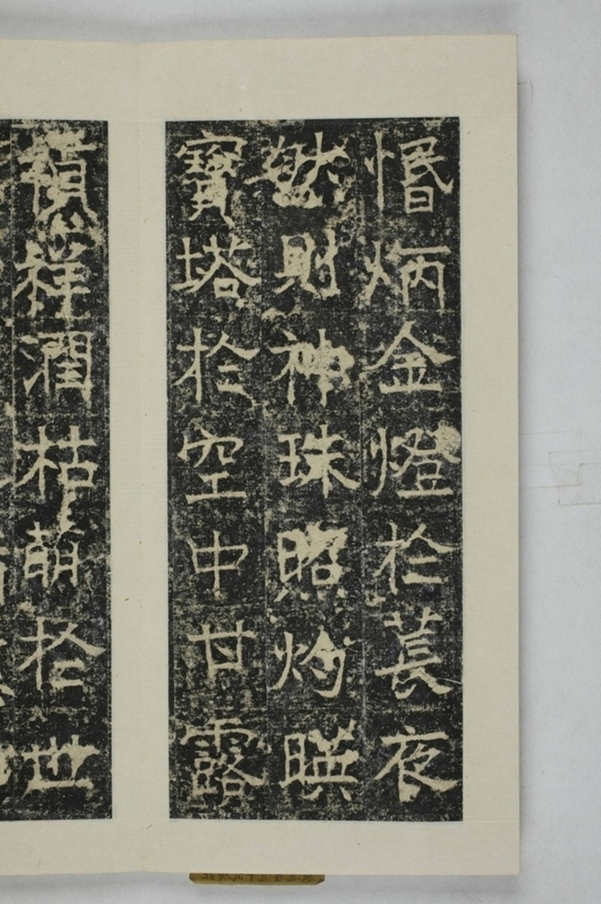 惛炳金燈於萇夜
然則神珠照灼暎
寶塔於空中甘露
祥潤枯萌於世